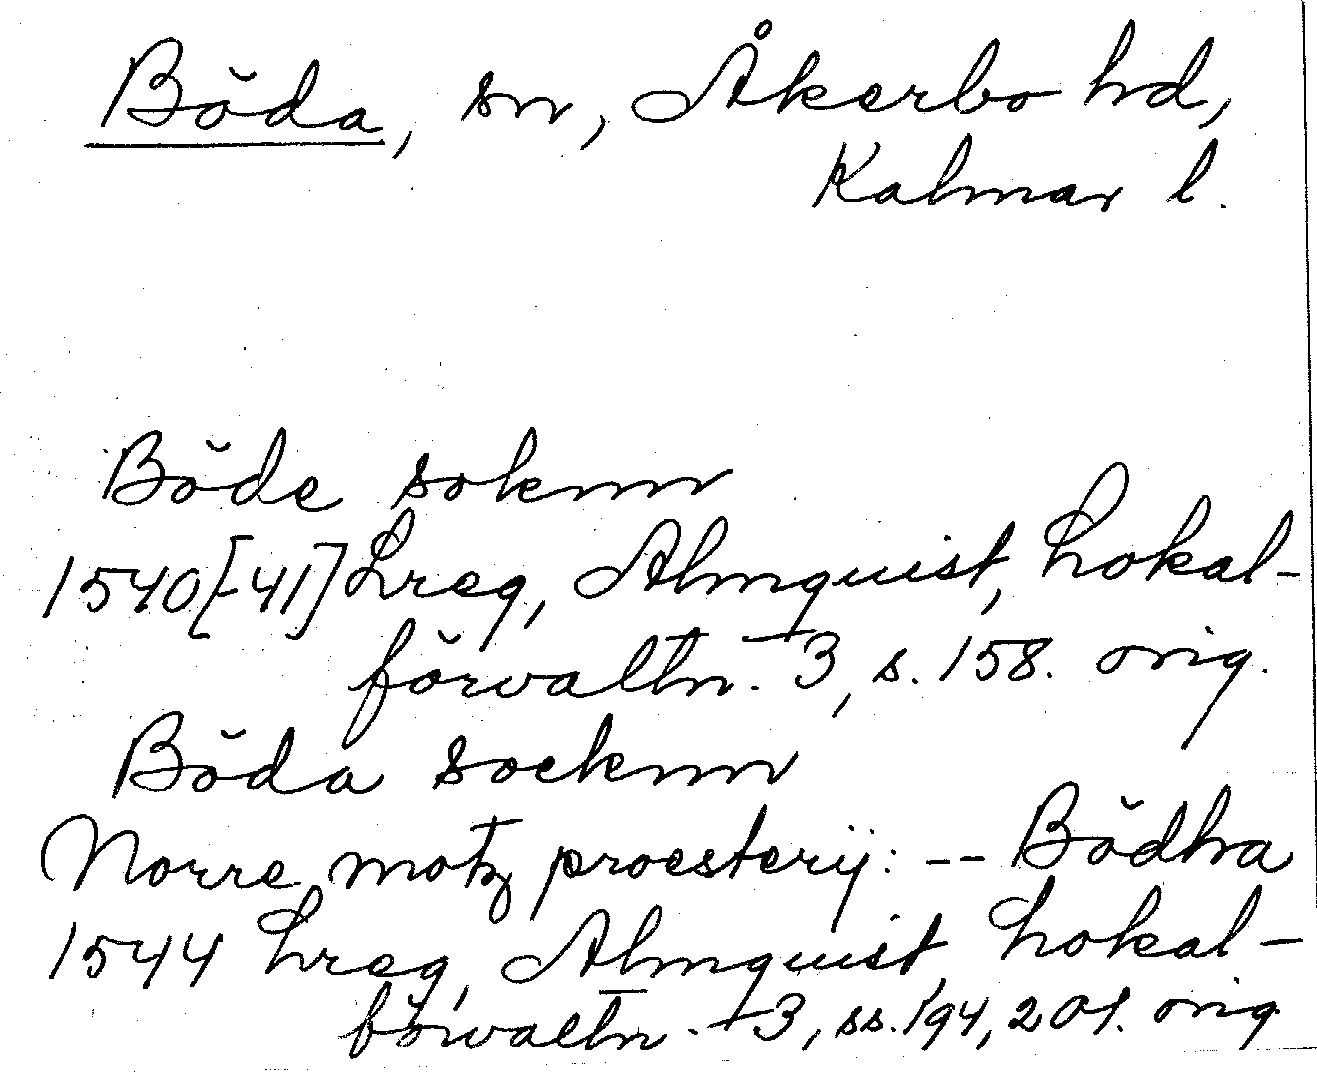 Böda, sn, Åkerbo hd,
Kalmar l.
Böde soknn
1540[-41] Lreg, Almquist, Lokal-
förvaltn. 3, s. 158. orig.
Böda socknn
Norre motz proesterij: -- Bödha
1544 Lreg, Almquist, Lokal-
förvaltn. 3, ss. 194, 201. orig